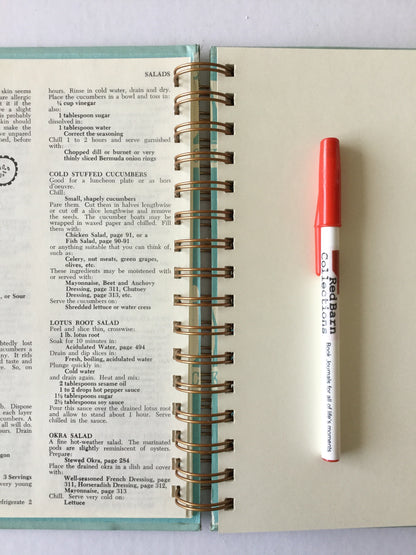 SALADS
skin seems
are allergic
t it if the
e a slight
is probably
skin should
make the
ve unpared
ned, before
, or Sour
btedly lost
ucumbers a
ny. It rids
d taste and
e. So, on
th. Dispose
each layer
cumbers. A
all will do.
ours. Drain
gon
3 Servings
very young
efrigerate 2
hours. Rinse in cold water, drain and dry.
Place the cucumbers in a bowl and toss in:
¼ cup vinegar
also:
1 tablespoon sugar
dissolved in:
1 tablespoon water
Correct the seasoning
Chill 1 to 2 hours and serve garnished
with:
Chopped dill or burnet or very
thinly sliced Bermuda onion rings
COLD STUFFED CUCUMBERS
Good for a luncheon plate or as hors
d'oeuvre.
Chill:
Small, shapely cucumbers
Pare them. Cut them in halves lengthwise
or cut off a slice lengthwise and remove
the seeds. The cucumber boats may be
wrapped in waxed paper and chilled. Fill
them with:
Chicken Salad, page 91, or a
Fish Salad, page 90-91
or anything suitable that you can think of,
such as:
Celery, nut meats, green grapes,
olives, etc.
These ingredients may be moistened with
or served with:
Mayonnaise, Beet and Anchovy
Dressing, page 311, Chutney
Dressing, page 313, etc.
Serve the cucumbers on:
Shredded lettuce or water cress
LOTUS ROOT SALAD
Peel and slice thin, crosswise:
1 lb. lotus root
Soak for 10 minutes in:
Acidulated Water, page 494
Drain and dip slices in:
Fresh, boiling, acidulated water
Plunge quickly in:
Cold water
and drain again. Heat and mix:
2 tablespoons sesame oil
1 to 2 drops hot pepper sauce
1½ tablespoons sugar
1½ tablespoons soy sauce
Pour this sauce over the drained lotus root
and allow to stand about 1 hour. Serve
chilled or cold.
OKRA SALAD
A fine hot-weather salad. The marinated
pods are slightly reminiscent of oysters.
Prepare:
Stewed Okra, page 284
Place the drained okra in a dish and cover
with:
Well-seasoned French Dressing, page
311, Horseradish Dressing, page 312,
Mayonnaise, page 313
Chill. Serve very cold on:
Lettuce
Red Barn
Collections
Book Journals for all of life's moments